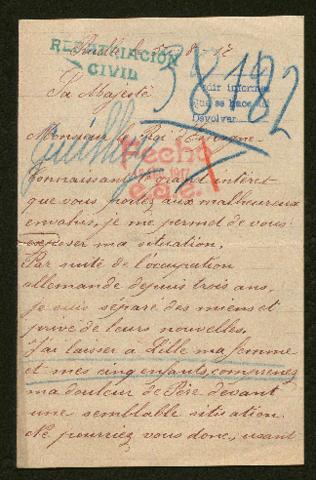 REPATRIACION
CIVIL
38182
Sa Majesté
Pedir informes
que se hace del
Devolver
Monsieur le Roi d'Espagne
Fecho
Connaissant le grand intéret
que vous portez aux malheureux
envahis, je me permet de vous
exposer ma situation,
Par suite de l'occupation
allemande depuis trois ans,
je suis séparé des miens et
privé de leurs nouvelles,
J'ai laisser à Lille ma femme
et mes cinq enfants, comprenez
ma douleur de Père devant
une semblable sitsation
Ne pourriez vous donc, usant